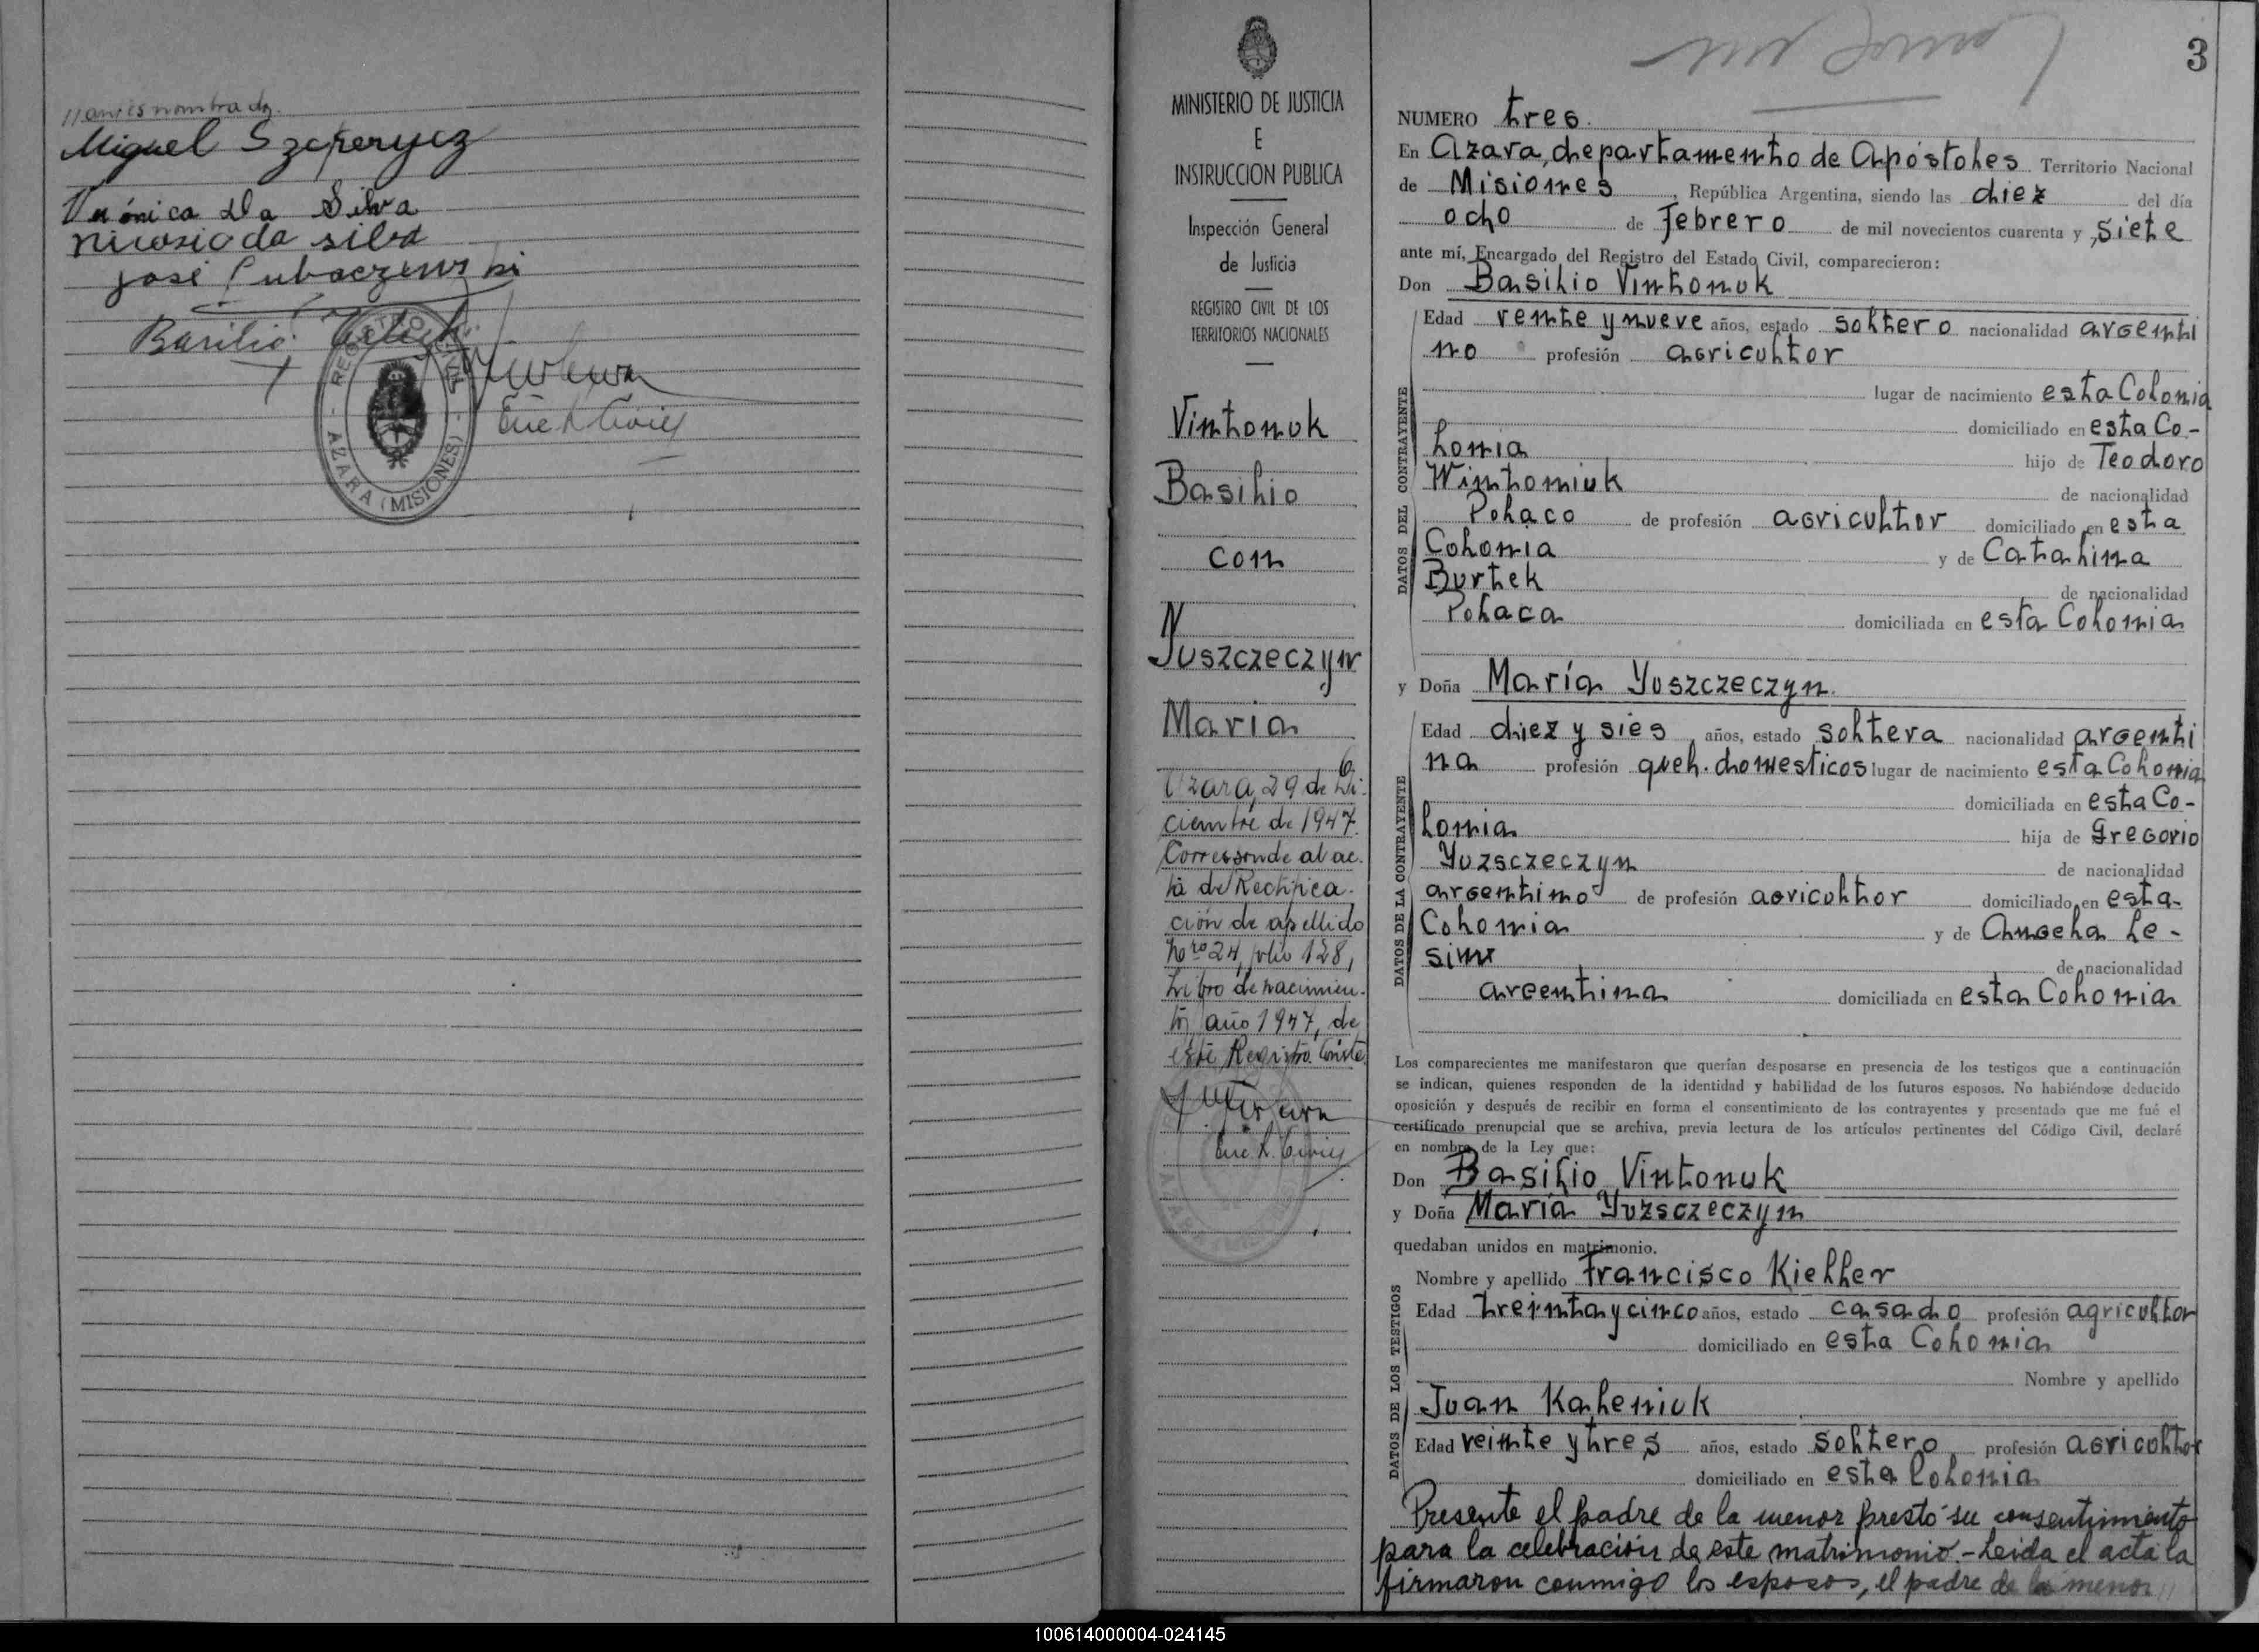 //antes nombrados.
Miguel
Verónica Da Silva
da silva
José
Basilio
REGISTRO CIVIL
AZARA (MISIONES)
Enc R. Civil
MINISTERIO DE JUSTICIA
E
INSTRUCCION PUBLICA
Inspección General
de Justicia
REGISTRO CIVIL DE LOS
TERRITORIOS NACIONALES
Vintonuk
Basilio
con
Juszczeczyn
Maria
Azara, 29 de Di-
ciembre de 1947.
Corresponde al ac-
ta de Rectifica-
ción de apellido
Nro 24, folio 128,
Libro de nacimien-
tos año 1947, de
este Registro Conste
Enc. R. Civil
3
NUMERO tres.
En Azara, departamento de Apóstoles Territorio Nacional
de Misiones, República Argentina, siendo las diez del día
ocho de Febrero de mil novecientos cuarenta y siete
ante mí, Encargado del Registro del Estado Civil, comparecieron:
Don Basilio Vintonuk
DATOS DEL CONTRAYENTE
Edad vente y nueve años, estado soltero nacionalidad argenti
no profesión agricultor
lugar de nacimiento esta Colonia
domiciliado en esta Co-
lonia hijo de Teodoro
Wintoniuk de nacionalidad
Polaco de profesión agricultor domiciliado en esta
Colonia y de Catalina
Burtek de nacionalidad
Polaca domiciliada en esta Colonia
y Doña María Yuszczeczyn.
DATOS DE LA CONTRAYENTE
Edad diez y sies años, estado soltera nacionalidad argenti
na profesión queh. domesticos lugar de nacimiento esta Colonia
domiciliada en esta Co-
lonia hija de Gregorio
Yuzsczeczyn de nacionalidad
argentino de profesión agricultor domiciliado en esta-
Colonia y de Angela Le-
siw de nacionalidad
argentina domiciliada en esta Colonia
Los comparecientes me manifestaron que querían desposarse en presencia de los testigos que a continuación
se indican, quienes responden de la identidad y habilidad de los futuros esposos. No habiéndose deducido
oposición y después de recibir en forma el consentimiento de los contrayentes y presentado que me fué el
certificado prenupcial que se archiva, previa lectura de los artículos pertinentes del Código Civil, declaré
en nombre de la Ley que:
Don Basilio Vintonuk
y Doña María Yuzsczeczyn
quedaban unidos en matrimonio.
DATOS DE LOS TESTIGOS
Nombre y apellido Francisco Kieller
Edad treinta y cinco años, estado casado profesión agricultor
domiciliado en esta Colonia
Nombre y apellido
Juan Kaleniuk
Edad veinte y tres años, estado soltero profesión agricultor
domiciliado en esta Colonia
Presente el padre de la menor prestó su consentimiento
para la celebración de este matrimonio.- Leida el acta la
firmaron conmigo los esposos, el padre de la menor //
100614000004-024145